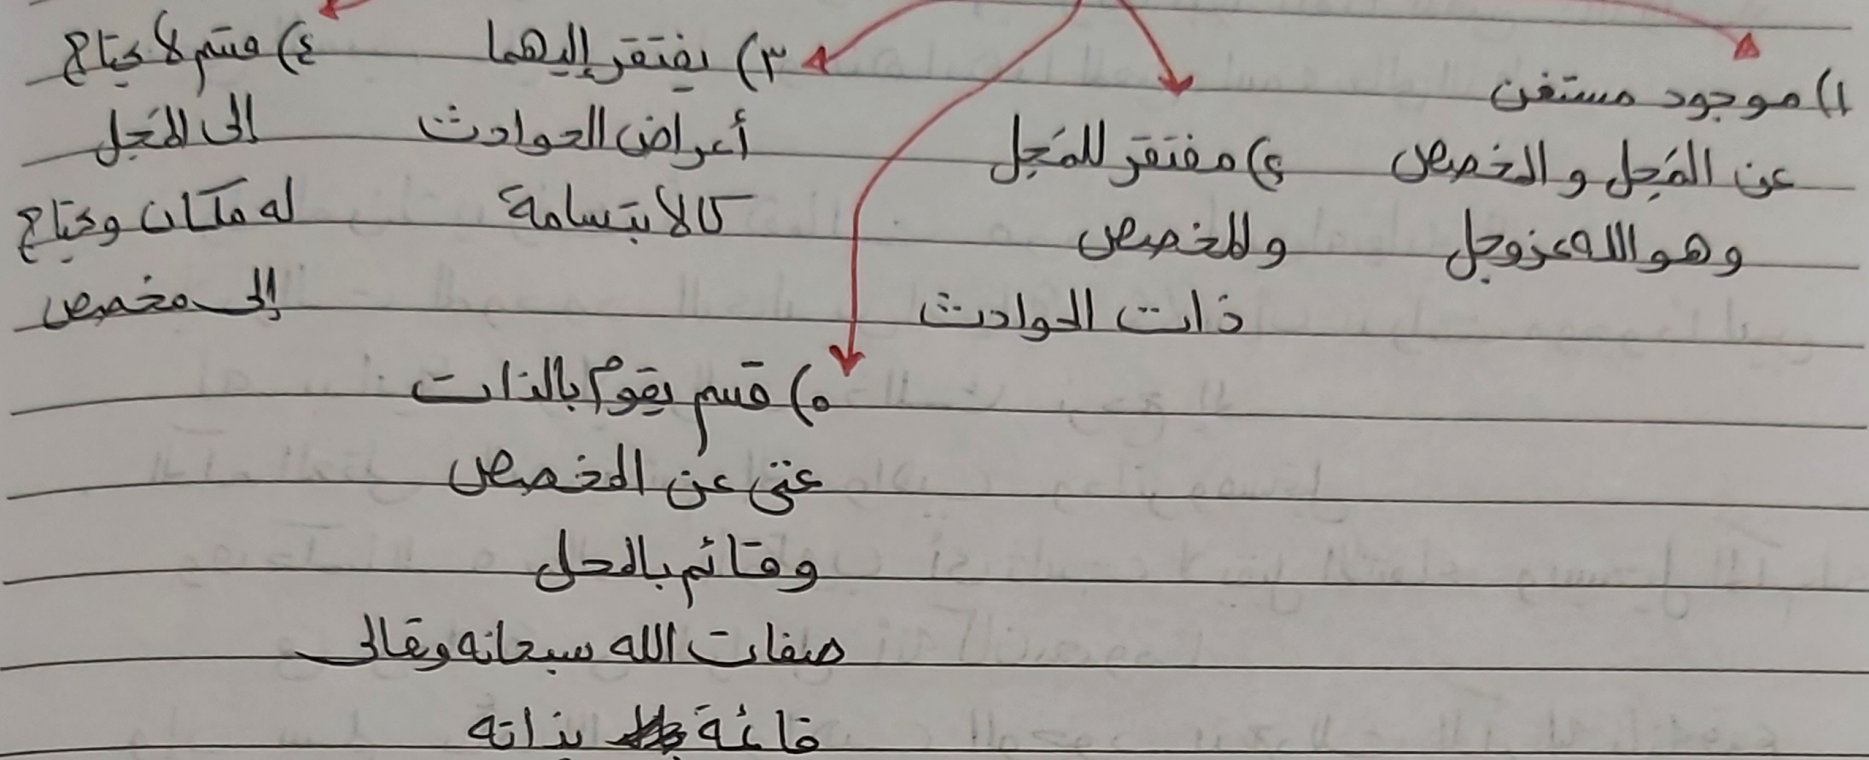 ١) موجود مستغن
عن المَحل والمخصص
وهو الله عزوجل
٢) مفتقر للمَحل
وللمخصص
ذات الحوادث
٣) يفتقر إليهما
أعراض الحوادث
كالابتسامة
٤) قسم لا يحتاج
الى المَحل
له مكان ويحتاج
إلى مخصص
٥) قسم يقوم بالذات
غني عن المخصص
وقائم بالمحل
صفات الله سبحانه وتعالى
قائمة بذاته